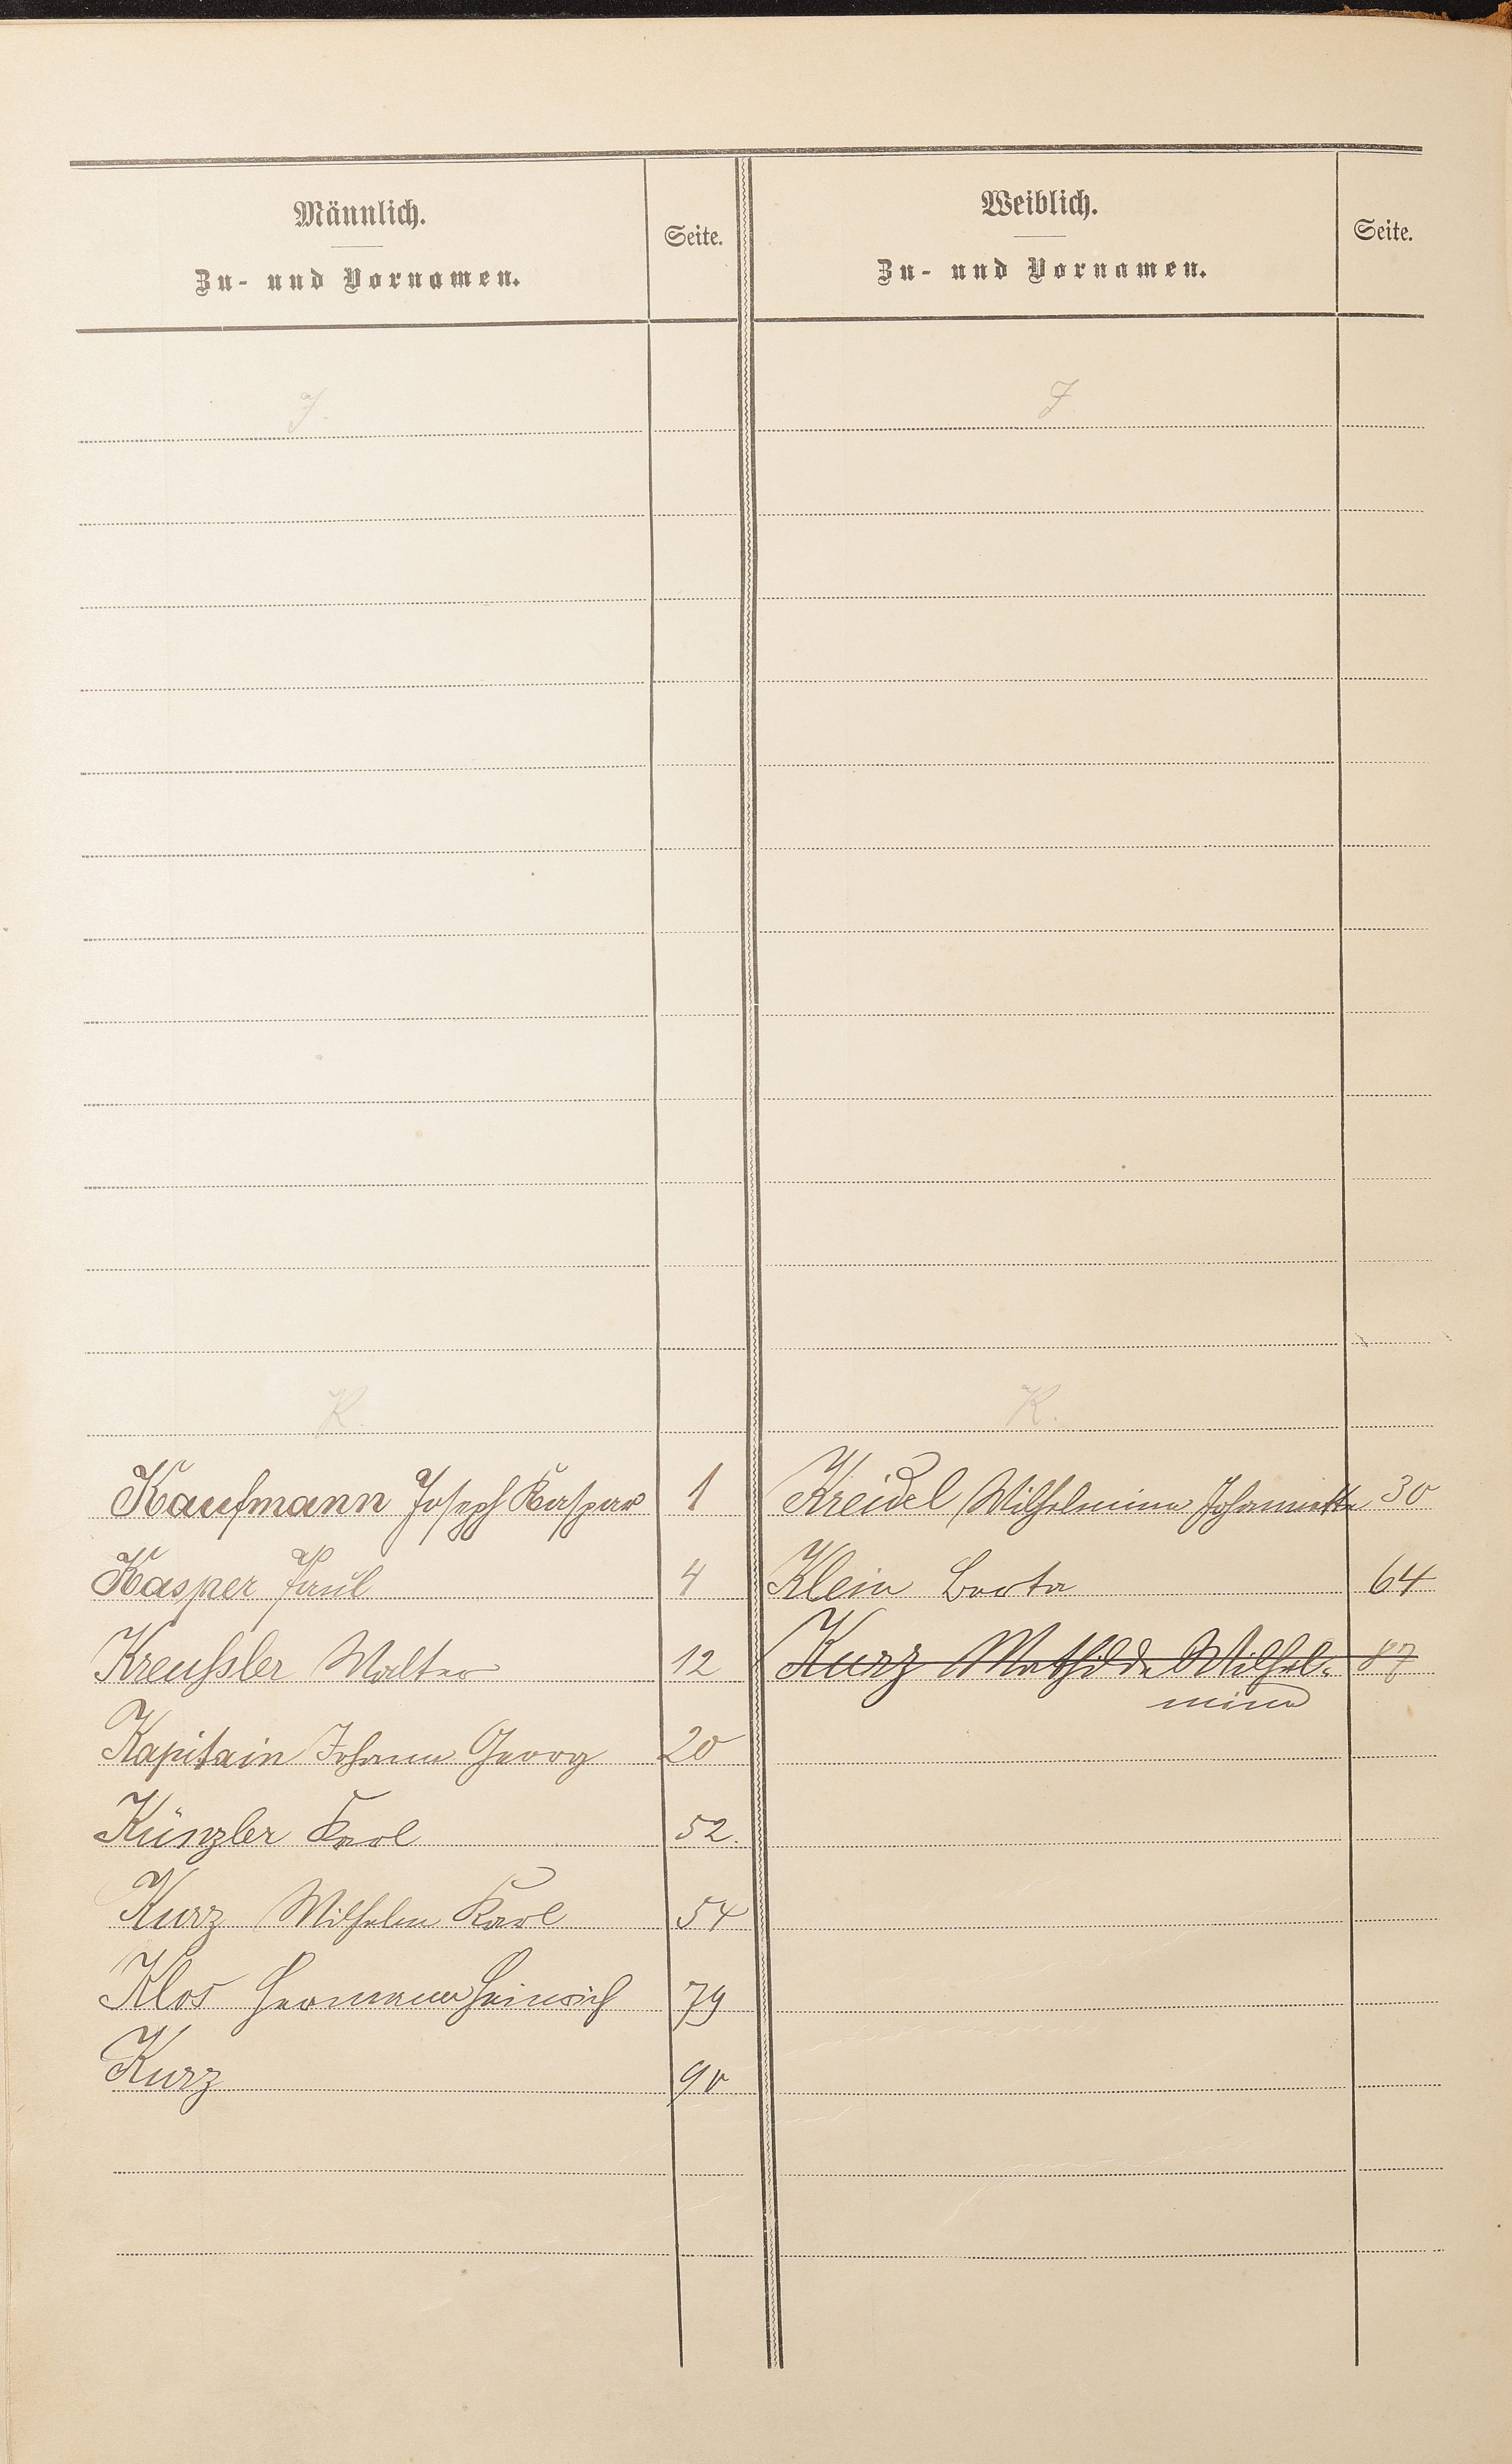 Männlich.
Zu- und Vornamen.
Seite.
Weiblich.
Zu- und Vornamen.
Seite.
J.
J.
K.
K.
Kaufmann Joseph Kaspar 1
Kreidel Wilhelmine Johannette 30
Kasper Paul 4
Klein Berta 64
Kreussler Walter 12
Kurz Mathilde Wilhel-
mine 87
Kapitain Johann Georg 20
Künzler Karl 52.
Kurz Wilhelm Karl 54
Klos Hermann Heinrich 79
Kurz 90